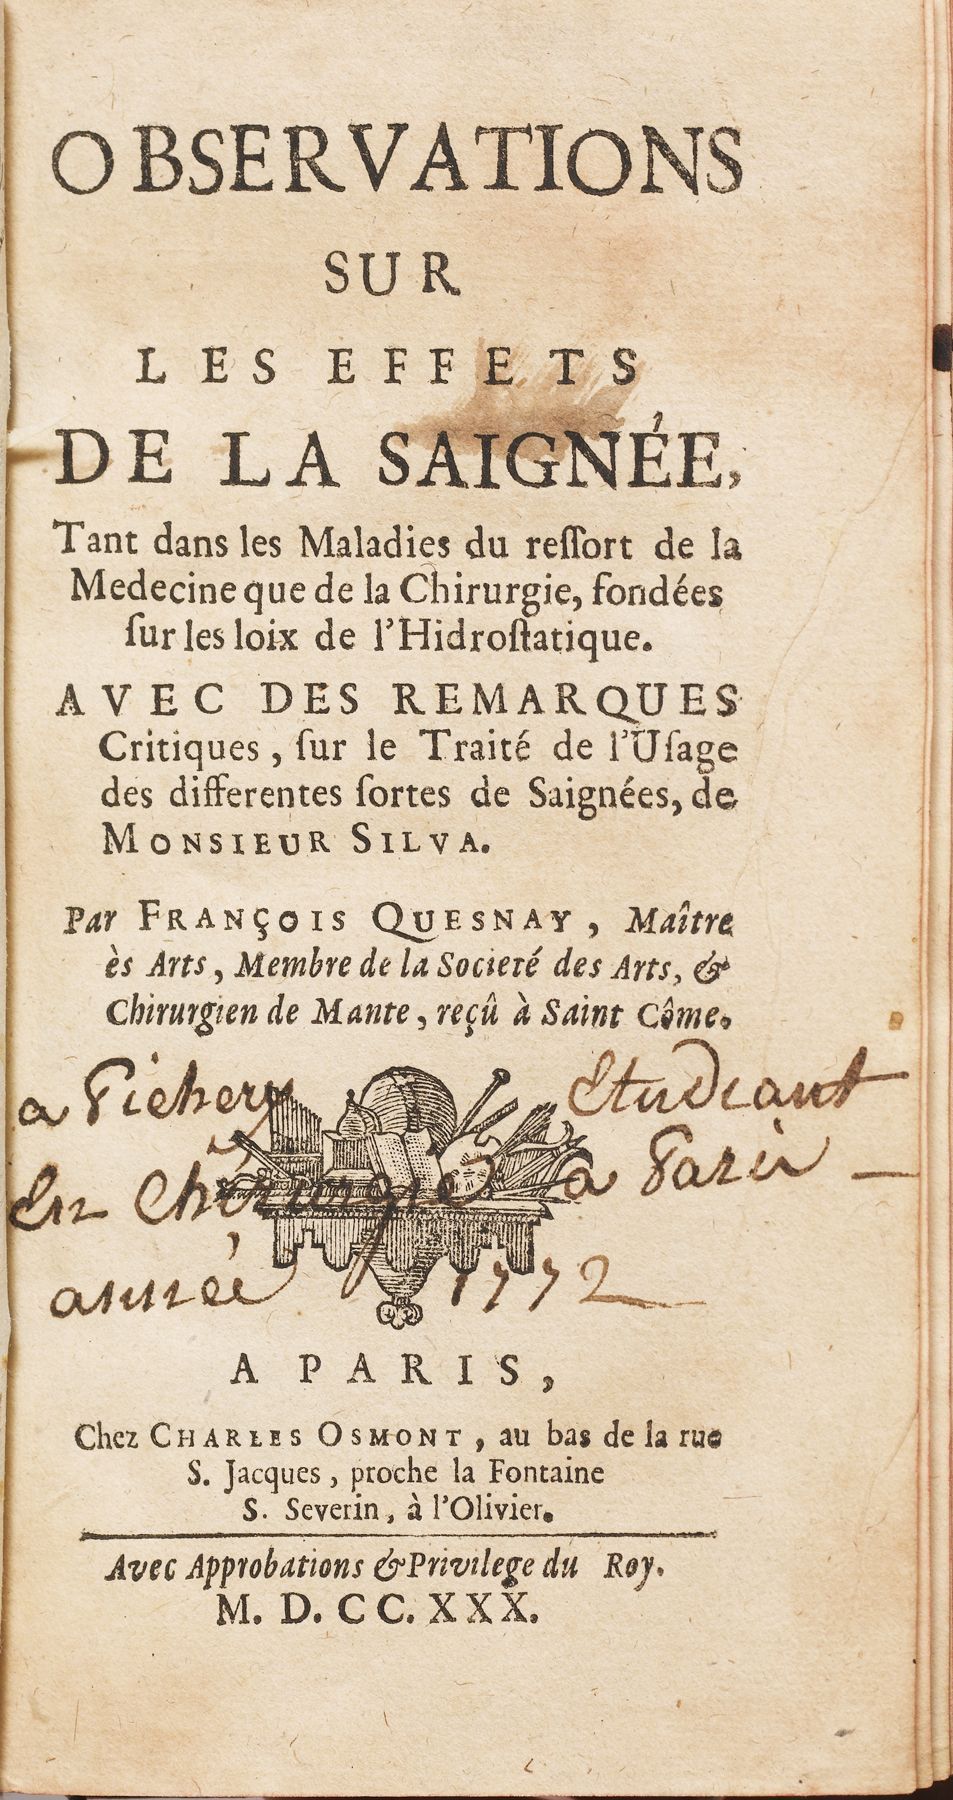 OBSERVATIONS
SUR
LES EFFETS
DE LA SAIGNÉE,
Tant dans les Maladies du reſſort de la
Medecine que de la Chirurgie, fondées
ſur les loix de l'Hidroſtatique.
AVEC DES REMARQUES
Critiques, ſur le Traité de l'Uſage
des differentes ſortes de Saignées, de
MONSIEUR SILVA.
Par FRANÇOIS QUESNAY, Maître
ès Arts, Membre de la Societé des Arts, &
Chirurgien de Mante, reçû à Saint Côme.
a Pichery Etudiant
En Chirurgie a Paris
année 1772
A PARIS,
Chez CHARLES OSMONT, au bas de la rue
S. Jacques, proche la Fontaine
S. Severin, à l'Olivier.
Avec Approbations & Privilege du Roy.
M. D. CC. XXX.